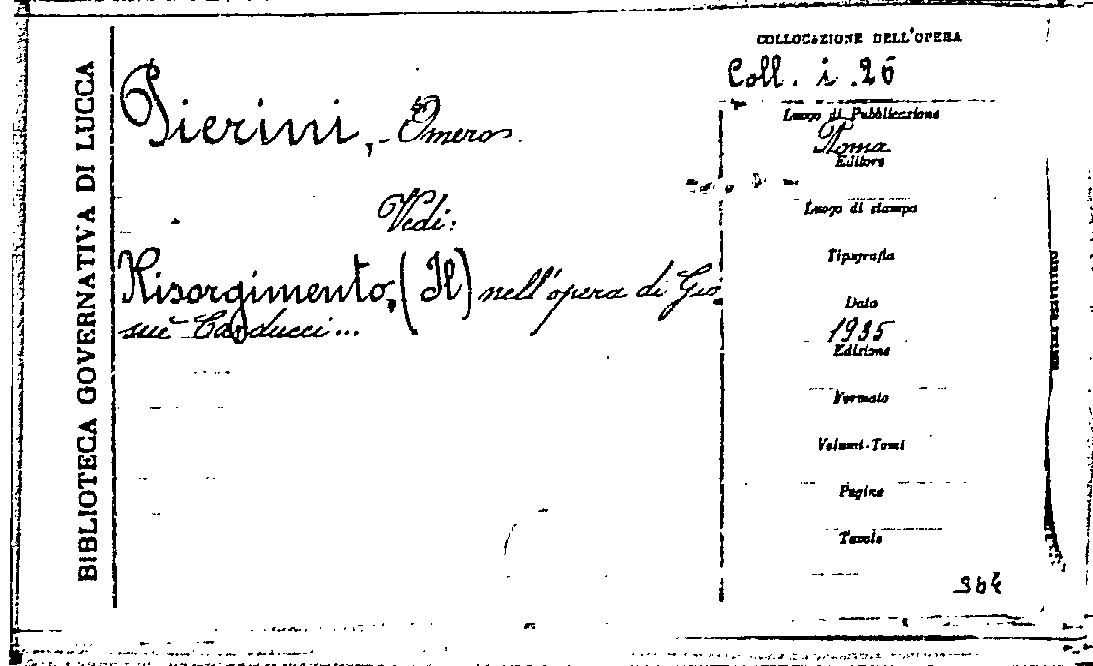 BIBLIOTECA GOVERNATIVA DI LUCCA
Pierini, Omero.
Vedi:
Risorgimento, (Il) nell'opera di Gio
suè Carducci...
COLLOCAZIONE DELL'OPERA
Coll. i. 26
Luogo di Pubblicazione
Roma
Editore
Luogo di stampa
Tipografia
Data
1935
Edizione
Formato
Volumi-Tomi
Pagine
Tavole